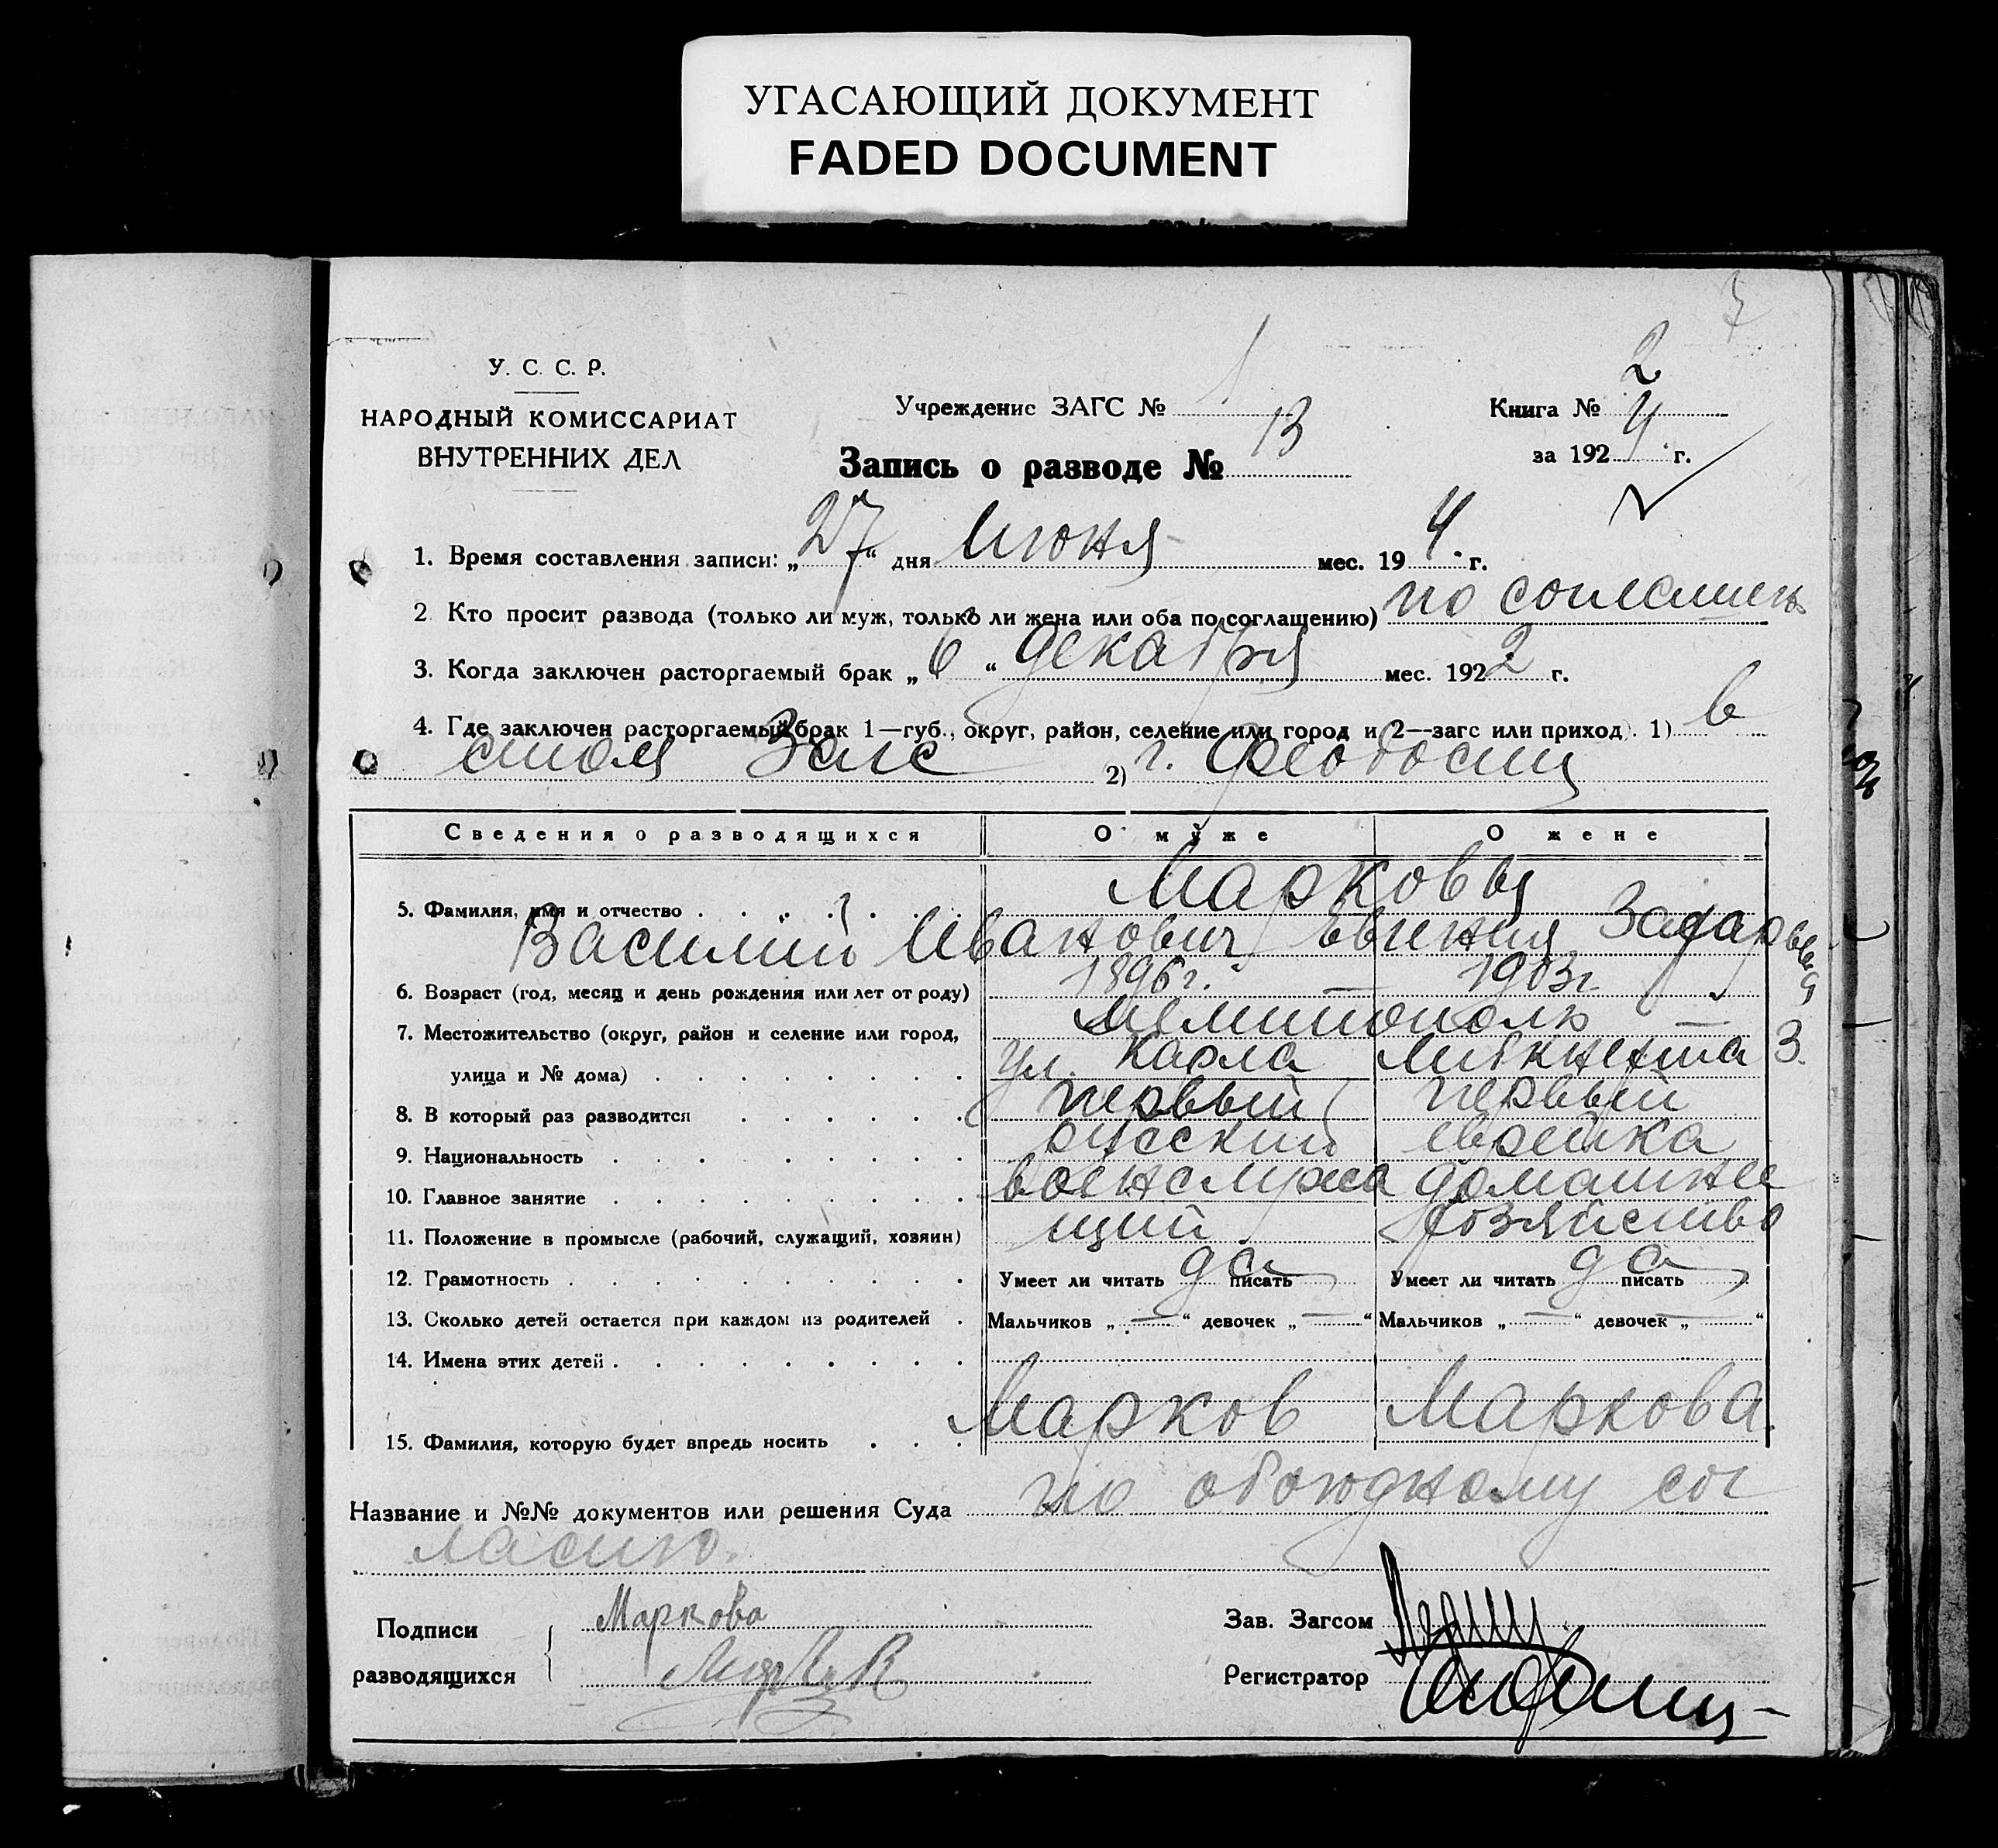 УГАСАЮЩИЙ ДОКУМЕНТ
FADED DOCUMENT
7
У. С. С. Р.
НАРОДНЫЙ КОМИССАРИАТ
ВНУТРЕННИХ ДЕЛ
Учреждение ЗАГС № 1
Запись о разводе № 13
Книга № 2
за 1924 г.
1. Время составления записи: „27“ дня Июня мес. 194 г.
2. Кто просит развода (только ли муж, только ли жена или оба по соглашению) по соглашен
3. Когда заключен расторгаемый брак „6“ декабря мес. 1922 г.
4. Где заключен расторгаемый брак 1—губ., округ, район, селение или город и 2—загс или приход). 1) в
Загс 2) г. Феодосии
Сведения о разводящихся О муже О жене
Марковы
5. Фамилия, имя и отчество
Василий Иванович Евгения Захарьевна
6. Возраст (год, месяц и день рождения или лет от роду) 1896 г. — 1903 г.
7. Местожительство (округ, район и селение или город, Мелитополь —
улица и № дома) ул. Карла Либкнехта 3.
8. В который раз разводится первый первый
9. Национальность русский еврейка
10. Главное занятие военслужа домашнее
11. Положение в промысле (рабочий, служащий, хозяин) щий хозяйство
12. Грамотность Умеет ли читать да писать Умеет ли читать да писать
13. Сколько детей остается при каждом из родителей Мальчиков „—“ девочек „—“ Мальчиков „—“ девочек „—“
14. Имена этих детей
15. Фамилия, которую будет впредь носить Марков Маркова.
Название и №№ документов или решения Суда по обоюдному сог
ласию.
Подписи Маркова Зав. Загсом
разводящихся Марков Регистратор